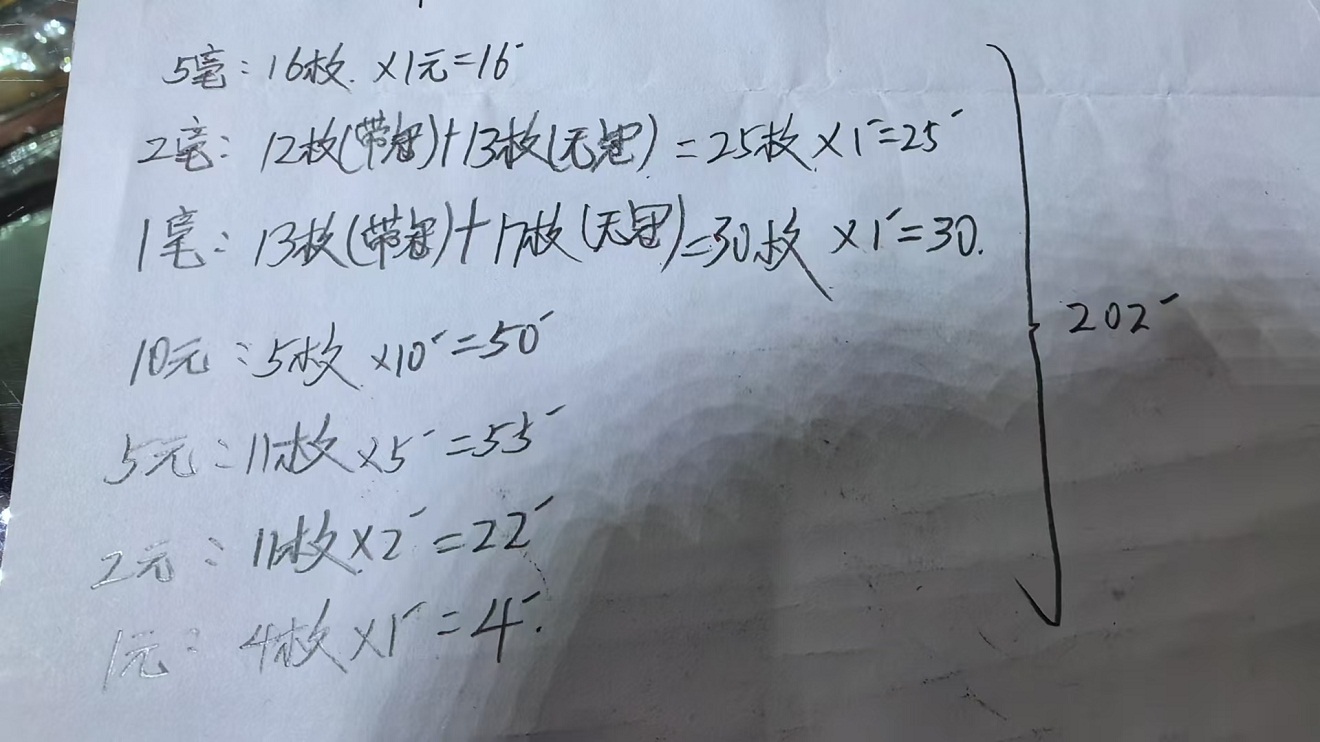 5毫：16枚.×1元=16-
2毫：12枚(带冠)+13枚(无冠)=25枚×1-=25-
1毫：13枚(带冠)+17枚(无冠)=30枚×1-=30.
10元：5枚×10-=50-
202-
5元：11枚×5-=55-
2元：11枚×2-=22-
1元：4枚×1-=4-.